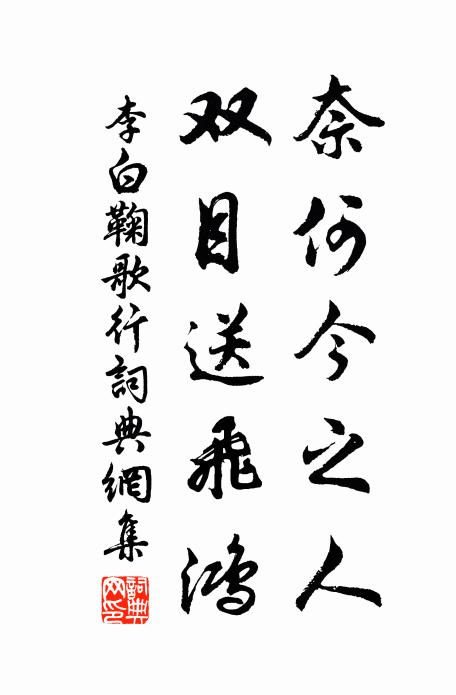 奈何今之人
双目送飛鸿
李白鞠歌行詞典網集
詞典网印